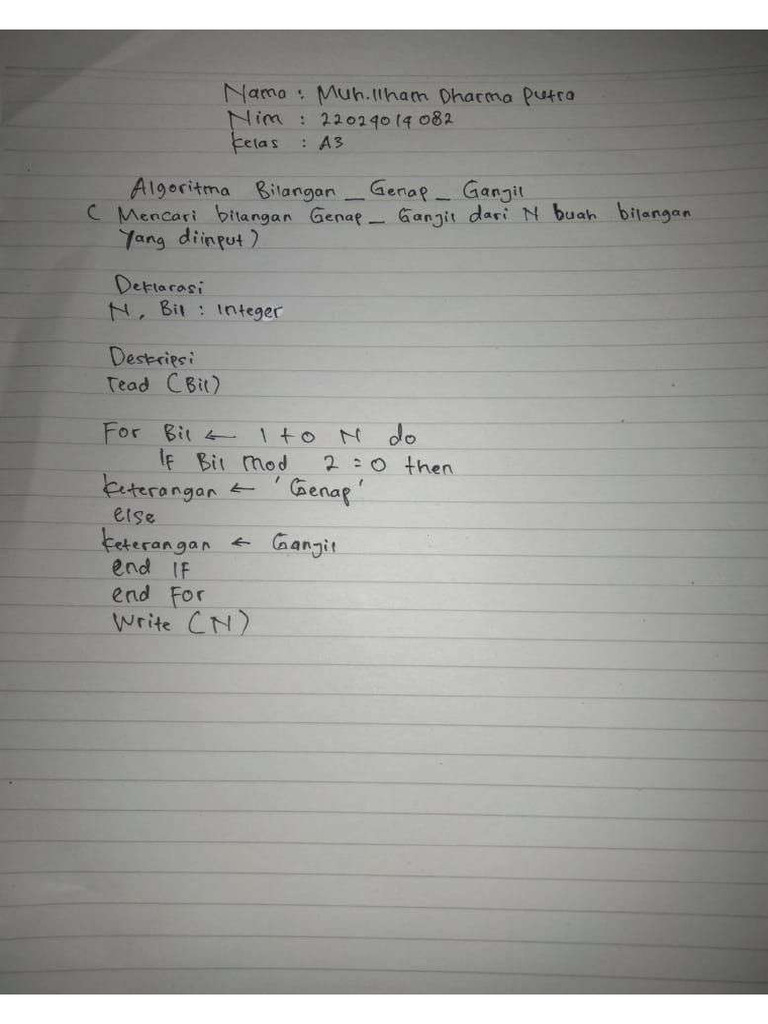 Nama : Muh.Ilham Dharma Putra
Nim : 22024014082
Kelas : A3
Algoritma Bilangan _ Genap _ Ganjil
( Mencari bilangan Genap _ Ganjil dari N buah bilangan
Yang diinput )
Deklarasi
N, Bil : Integer
Deskripsi
read (Bil)
For Bil ← 1 to N do
IF Bil mod 2 = 0 then
Keterangan ← 'Genap'
else
Keterangan ← Ganjil
end IF
end For
Write (N)